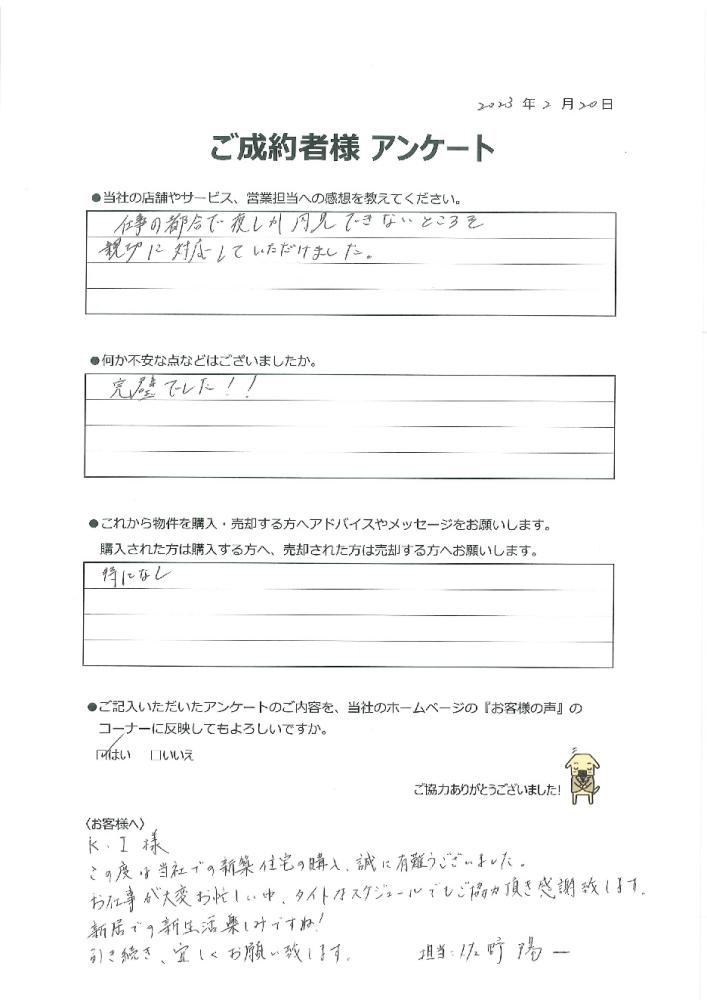 2023年2月20日
ご成約者様 アンケート
●当社の店舗やサービス、営業担当への感想を教えてください。
仕事の都合で夜しか内見できないところを
親切に対応していただけました。
●何か不安な点などはございましたか。
完璧でした!!
●これから物件を購入・売却する方へアドバイスやメッセージをお願いします。
購入された方は購入する方へ、売却された方は売却する方へお願いします。
特になし
●ご記入いただいたアンケートのご内容を、当社のホームページの『お客様の声』の
コーナーに反映してもよろしいですか。
☑はい □いいえ
ご協力ありがとうございました!
〈お客様へ〉
K.I様
この度は当社での新築住宅の購入、誠に有難うございました。
お仕事が大変お忙しい中、タイトなスケジュールでもご協力頂き感謝致します。
新居での新生活楽しみですね!
引き続き、宜しくお願い致します。 担当:佐野陽一